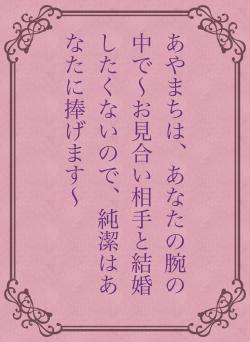 あやまちは、あなたの腕の
中で～お見合い相手と結婚
したくないので、純潔はあ
なたに捧げます～